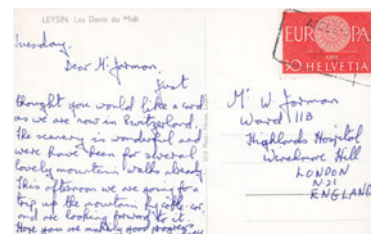 LEYSIN. Les Dents du Midi
Tuesday.
Dear Mr. Jarman,
Just
thought you would like a card
as we are now in Switzerland.
The scenery is wonderful and
we have been for several
lovely mountain walks already.
This afternoon we are going for a
trip up the mountain by cable-car,
and are looking forward to it.
Hope you are making good progress
EUROPA
30 HELVETIA
Mr W. Jarman
Ward 11B
Highlands Hospital
Winchmore Hill
LONDON
N21
ENGLAND